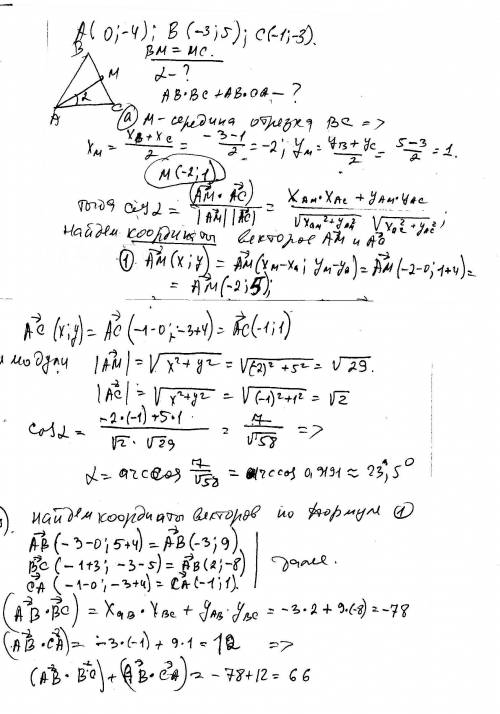 A(0;-4); B(-3;5); C(-1;-3).
B
BM = MC.
M
2
A
C
α-?
AB·BC + AB·CA - ?
а) M - середина отрезка BC =>
x_M = (x_B + x_C)/2 = (-3-1)/2 = -2; y_M = (y_B + y_C)/2 = (5-3)/2 = 1.
M(-2;1)
тогда cos α = (AM·AC)/(|AM| |AC|) = (x_AM·x_AC + y_AM·y_AC)/(√(x²_AM + y²_AM) √(x²_AC + y²_AC));
найдем координаты векторов AM и AC
① AM(x;y) = AM(x_M - x_A; y_M - y_A) = AM(-2-0; 1+4) =
= AM(-2; 5);
AC(x;y) = AC(-1-0; -3+4) = AC(-1; 1)
модули |AM| = √(x² + y²) = √((-2)² + 5²) = √29.
|AC| = √(x² + y²) = √((-1)² + 1²) = √2
cos α = (-2·(-1) + 5·1)/(√2·√29) = 7/√58 =>
α = arccos 7/√58 = arccos 0,9191 ≈ 23,5°
найдем координаты векторов по формуле ①
AB(-3-0; 5+4) = AB(-3; 9)
BC(-1+3; -3-5) = AB(2; -8)
CA(-1-0; -3+4) = CA(-1; 1).
далее.
(AB·BC) = x_AB·x_BC + y_AB·y_BC = -3·2 + 9·(-8) = -78
(AB·CA) = -3·(-1) + 9·1 = 12 =>
(AB·BC) + (AB·CA) = -78 + 12 = 66